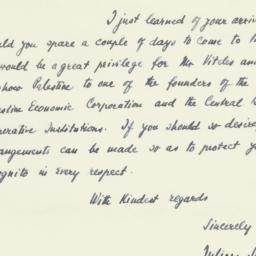 I just learned of your arriv
ld you spare a couple of days to come to
would be a great privilege for Mr Viteles and
show Palestine to one of the founders of the
stine Economic Corporation and the Central
erative Institutions. If you should so desire
angements can be made so as to protect y
ognito in every respect.
With Kindest regards
Sincerely